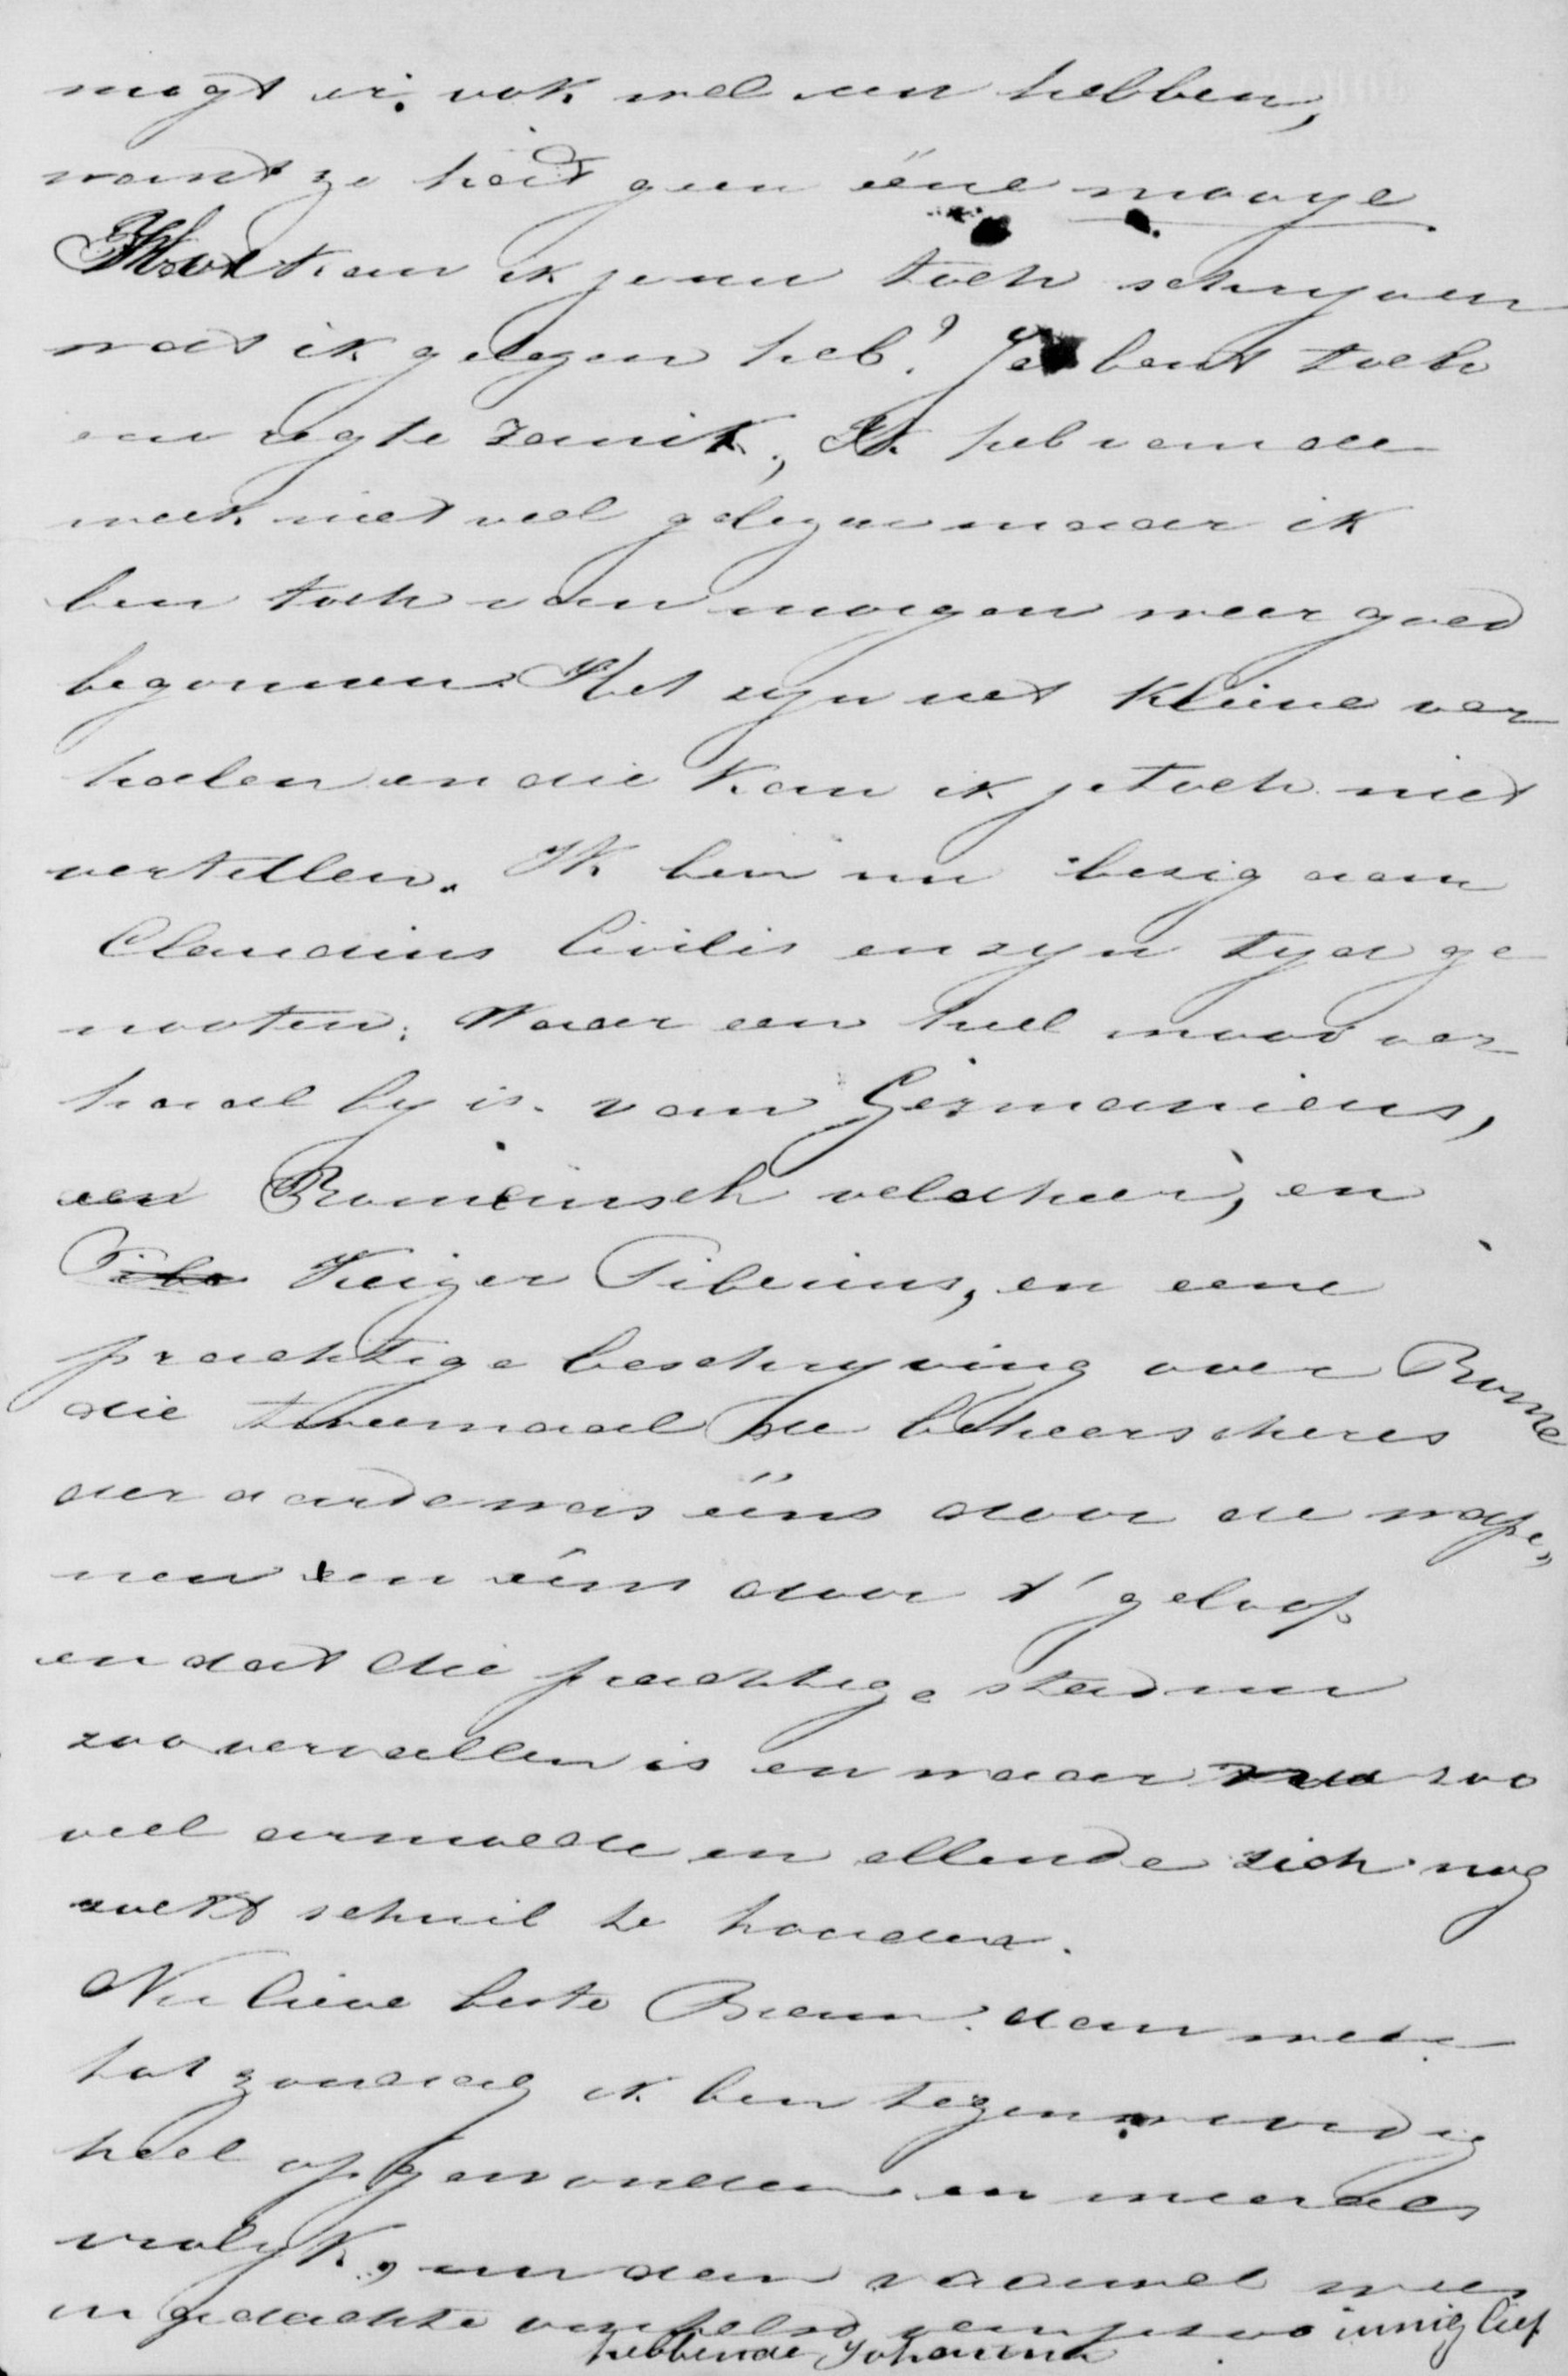 mogt er. ook wel een hebben,
want ze had geen ééne mooye
Wat kan ik jenu toch schryven
wat ik gelezen heb? Je bent toch
een regte zanik, Ik heb van de
week niet veel gelezen maar ik
ben toch van morgen weer goed
begonnen. Het zyn net kleine ver
halen en die kan ik je toch niet
vertellen. Ik ben nu bezig aan
Claudius Civilis en zyn tyd ge
nooten. Waar een heel mooi ver
haal by is van Germanicus,
een Romeinsch veldheer, en
Tibe Keizer Tiberius, en eene
prachtige beschryving over Rome
die tweemaal de beheerscheres
der aarde was ééns door de wape„
nen en ééns door t' geloof
en dat die prachtige stad nu
zoo vervallen is en waar zoo
veel armoede en ellende zich nog
zoekt schuil te houden.
Nu lieve beste Bram. dan weer
tot zondag ik ben tegenwoordig
heel opgewonden en meer als
vrolyk, nu dan vaarwel wees
in gedachte omhelsd van jezoo innig lief
hebbende Johanna